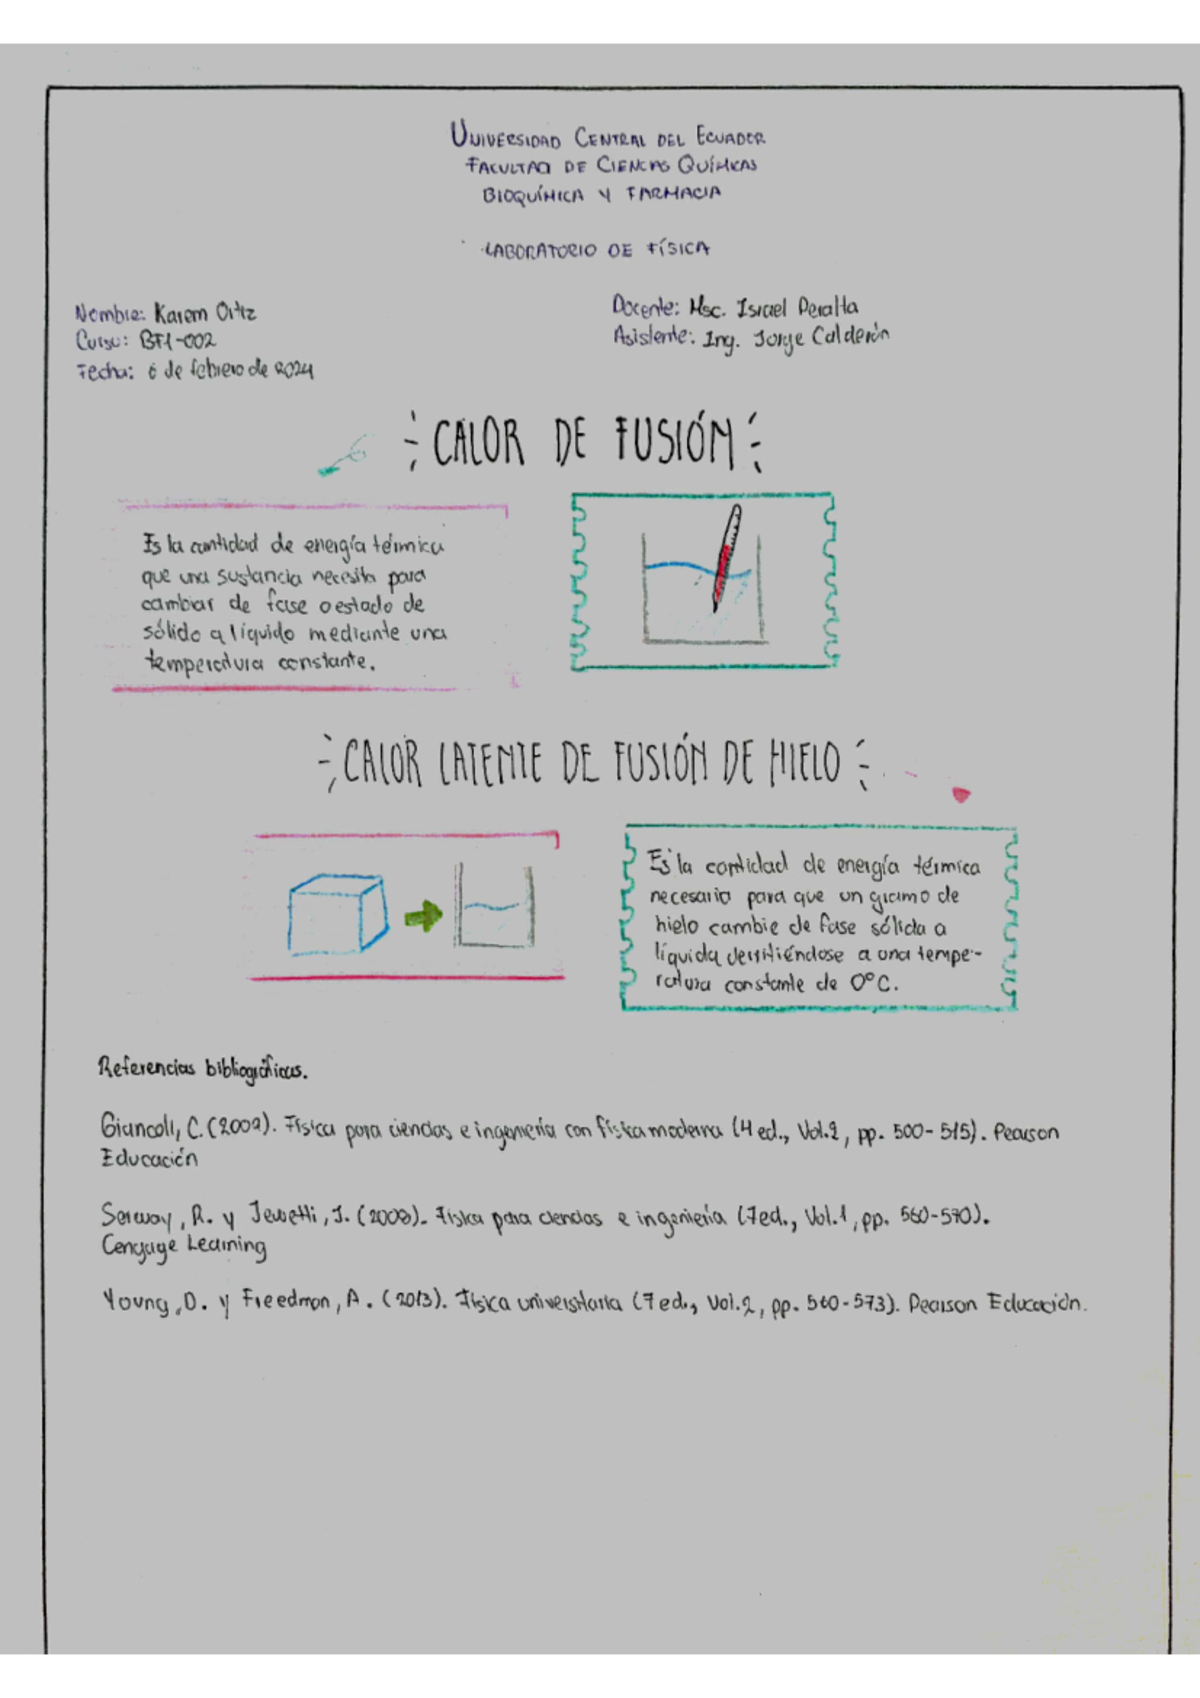 UNIVERSIDAD CENTRAL DEL ECUADOR
FACULTAD DE CIENCIAS QUÍMICAS
BIOQUÍMICA Y FARMACIA
LABORATORIO DE FÍSICA
Nombre: Karem Ortiz
Curso: BF1-002
Fecha: 6 de febrero de 2024
Docente: Msc. Israel Peralta
Asistente: Ing. Jorge Calderón
CALOR DE FUSIÓN
Es la cantidad de energía térmica
que una sustancia necesita para
cambiar de fase o estado de
sólido a líquido mediante una
temperatura constante.
CALOR LATENTE DE FUSIÓN DE HIELO
Es la cantidad de energía térmica
necesaria para que un gramo de
hielo cambie de fase sólida a
líquida derritiéndose a una tempe-
ratura constante de 0°C.
Referencias bibliográficas.
Giancoli, C. (2002). Física para ciencias e ingeniería con física moderna (4 ed., Vol.2, pp. 500-515). Pearson
Educación
Serway, R. y Jewetti, J. (2008). Física para ciencias e ingeniería (7ed., Vol.1, pp. 560-570).
Cengage Learning
Young, D. y Freedman, A. (2013). Física universitaria (7 ed., Vol.2, pp. 560-573). Pearson Educación.